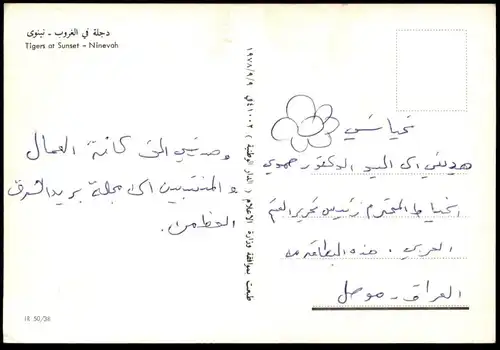 دجلة في الغروب - نينوى
Tigers at Sunset - Ninevah
وصديقي الى كافة العمال
و المنتسبين الى مجلة بريد الشرق
طبعت بموافقة وزارة الاعلام ( الدار الوطنية ) ٤١٠٠٢ في ١٩٧٨/٩/٩
تحياتي
هديتي الى السيد الدكتور حمودي
المحترم رئيس تحرير القسم
العربي. هذه البطاقة من
العراق - موصل
IR 50/38